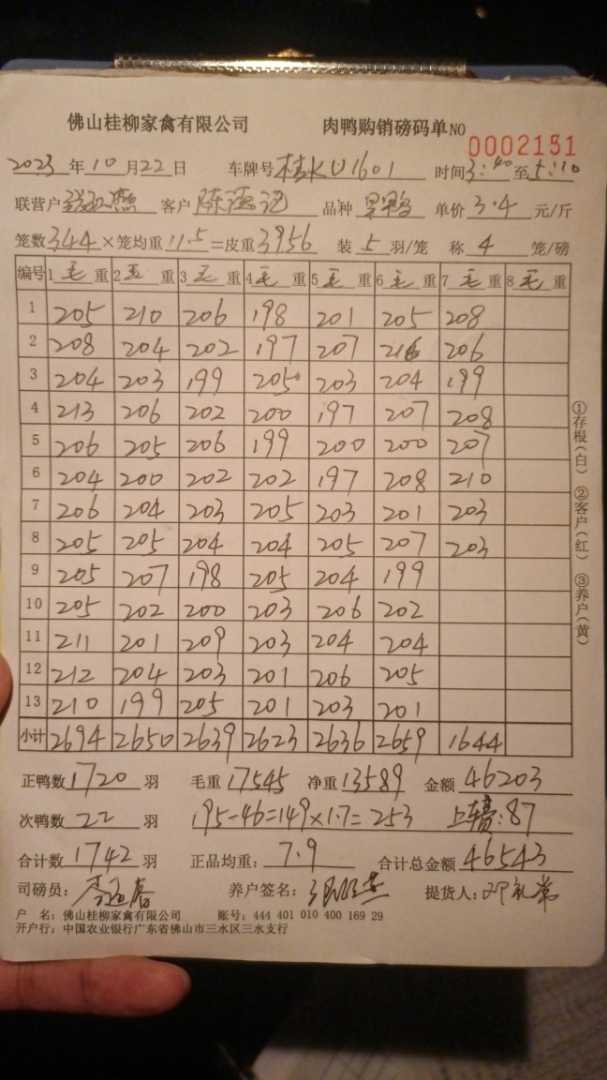 佛山桂柳家禽有限公司 肉鸭购销磅码单NO 0002151
2023年10月22日 车牌号桂KU1601 时间3:40至5:10
联营户 燕 客户 陈 记 品种 鸭 单价 3.4 元/斤
笼数344×笼均重11.5=皮重3956 装 5 羽/笼 称 4 笼/磅
编号 1毛重 2毛重 3毛重 4毛重 5毛重 6毛重 7毛重 8毛重
1 205 210 206 198 201 205 208
2 208 204 202 197 207 216 206
3 204 203 199 205 203 204 199
4 213 206 202 200 197 207 208
5 206 205 206 199 200 200 207
6 204 200 202 202 197 208 210
7 206 204 203 205 203 201 203
8 205 205 204 204 205 207 203
9 205 207 198 205 204 199
10 205 202 200 203 206 202
11 211 201 209 203 204 204
12 212 204 203 201 206 205
13 210 199 205 201 203 201
小计 2694 2650 2639 2623 2636 2659 1644
正鸭数1720羽 毛重17545 净重13589 金额46203
次鸭数22羽 195-46=149×1.7=253 上车费:87
合计数1742羽 正品均重:7.9 合计总金额46543
司磅员: 养户签名: 提货人:
户 名:佛山桂柳家禽有限公司 账号:444 401 010 400 169 29
开户行:中国农业银行广东省佛山市三水区三水支行
①存根(白) ②客户(红) ③养户(黄)